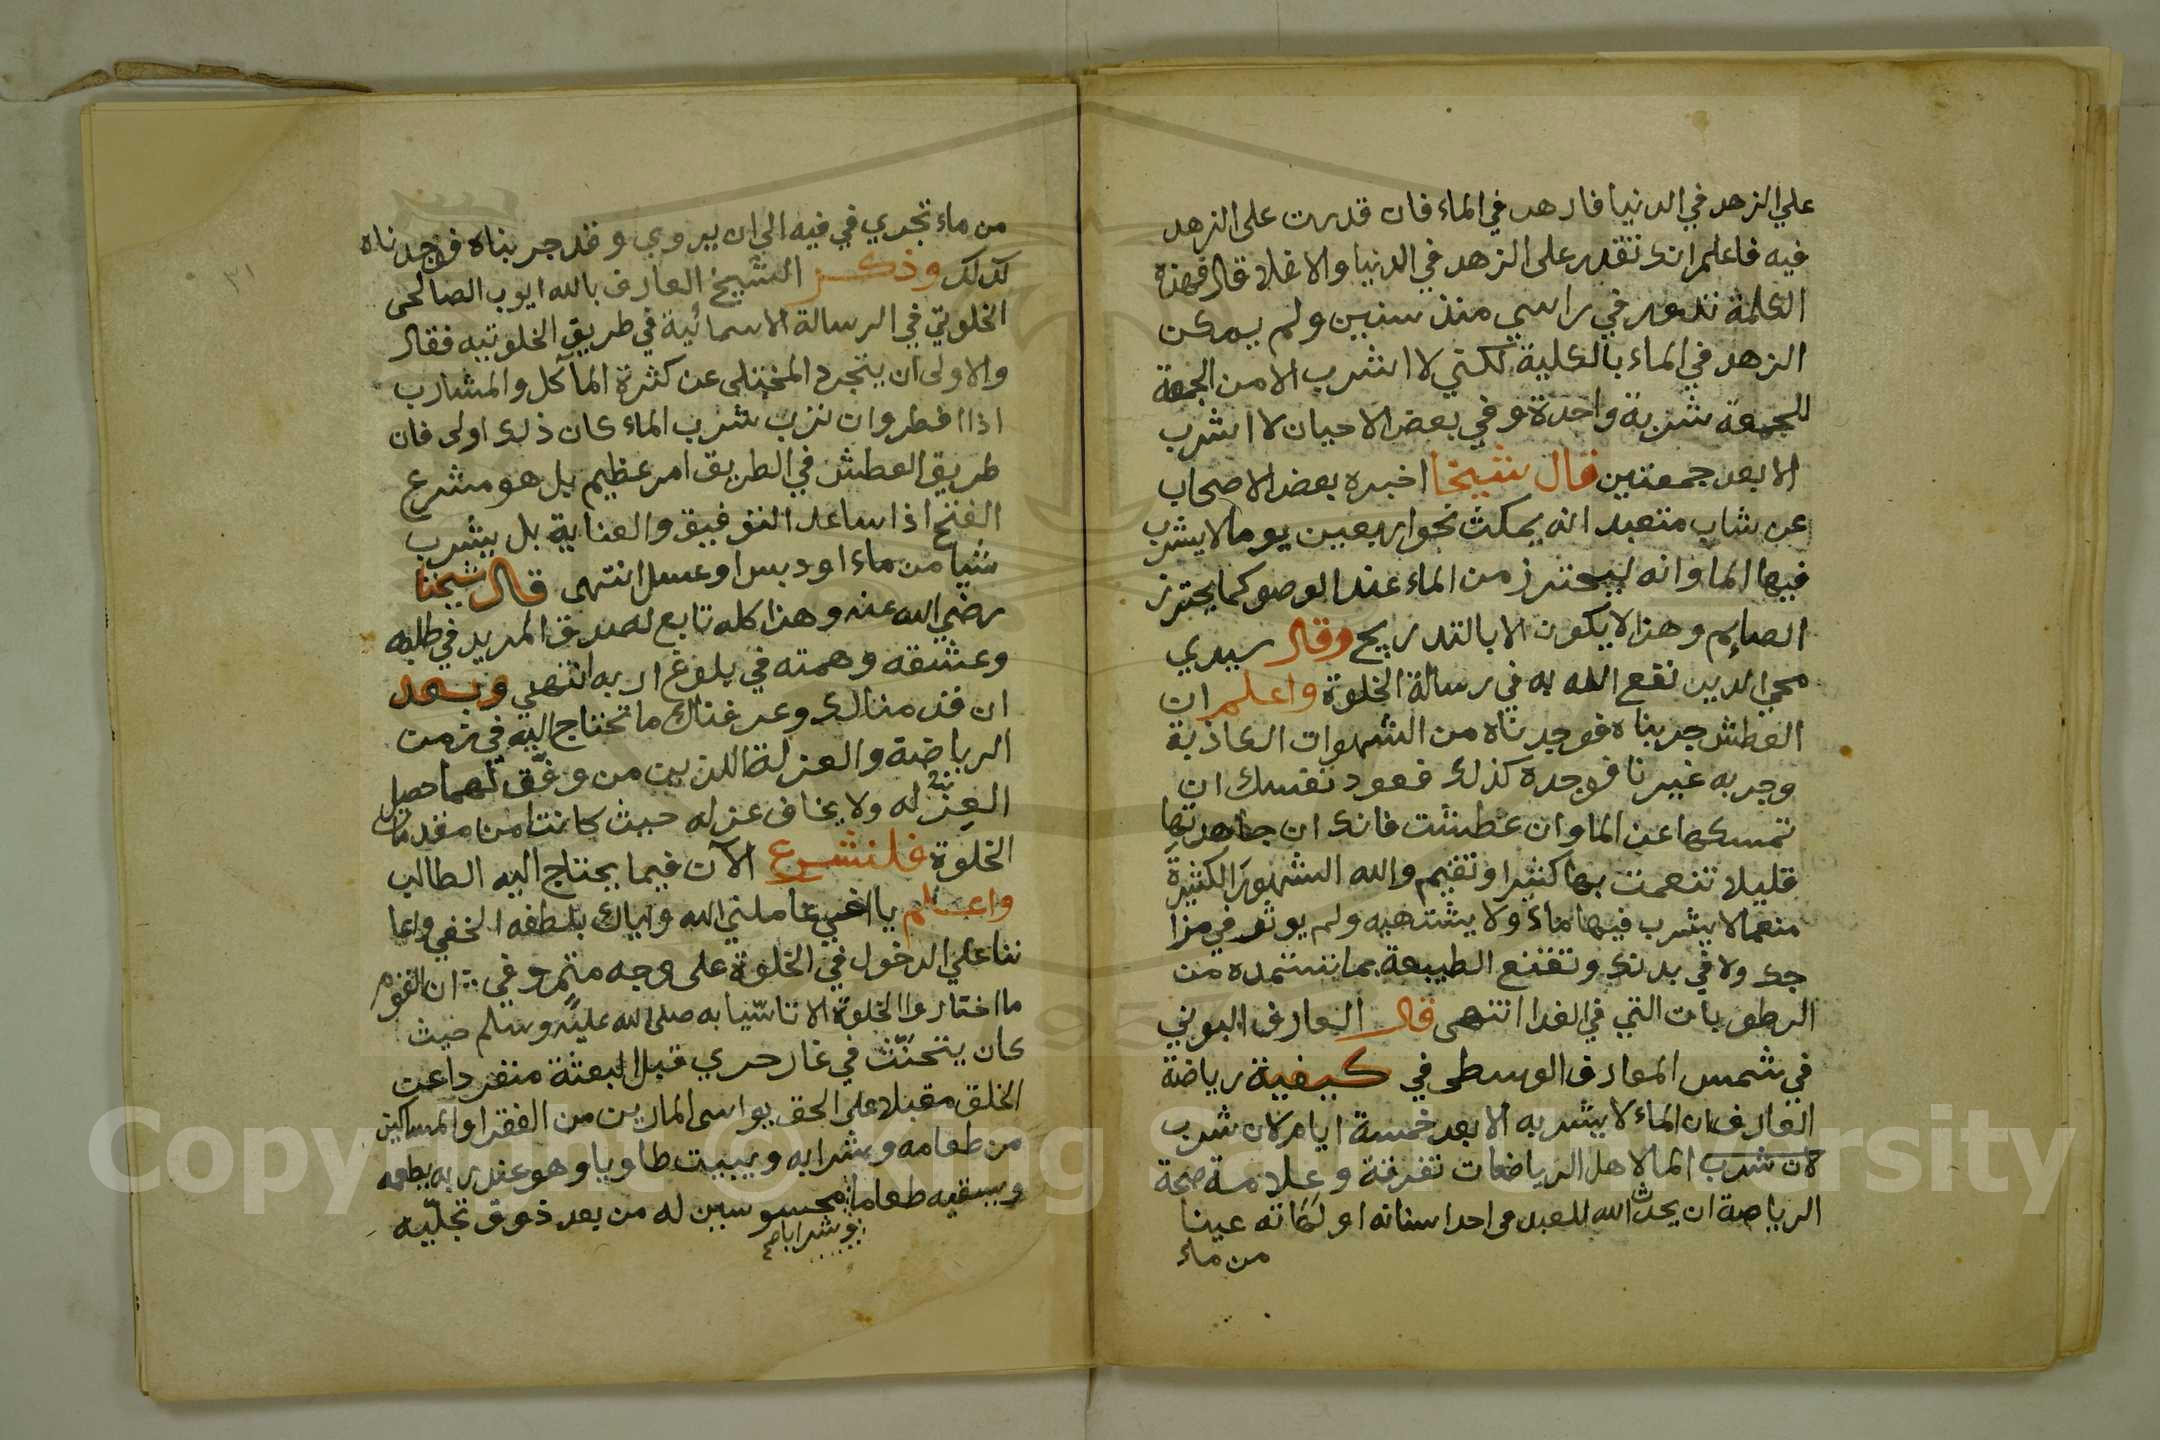 علي الزهد في الدنيا فازهد في الماء فان قدرت على الزهد
فيه فاعلم انك تقدر على الزهد في الدنيا والا فلا قال فهذه
الكلمة تدور في راسي منذ سنين ولم يمكن
الزهد في الماء بالكلية لكني لا اشرب الا من الجمعة
للجمعة شربة واحدة وفي بعض الاحيان لا اشرب
الا بعد جمعتين قال شيخنا اخبره بعض الاصحاب
عن شاب متعبد انه يمكث نحو اربعين يوما لا يشرب
فيها الما وانه ليحترز من الماء عند الوضو كما يحترز
الصايم وهذا لا يكون الا بالتدريج وقال سيدي
محي الدين نفع الله به في رسالة الخلوة واعلم ان
العطش جربناه فوجدناه من الشهوات الكاذبة
وجربه غيرنا فوجده كذلك فعود نفسك ان
تمسكها عن الما وان عطشت فانك ان جاهدتها
قليلا تنعمت بها كثيرا وتقيم والله الشهور الكثيرة
منعما لا يشرب فيها ماء ولا يشتهيه ولم يوثر في مزا
جك ولا في بدنك وتقنع الطبيعة بما تستمده من
الرطوبات التي في الغدا انتهى قال العارف البوني
في شمس المعارف الوسطى في كيفية رياضة
العارف ان الماء لا يشربه الا بعد خمسة ايام لان شرب
لان شرب الما لاهل الرياضات تفرقة وعلامة صحة
الرياضة ان يحدث الله للعبد في احد اسنانه او لهاته عينا
من ماء
٣١
من ماء تجري في فيه الى ان يروي وقد جربناه فوجدناه
كذلك وذكر الشيخ العارف بالله ايوب الصالحى
الخلوتي في الرسالة الاسمائية في طريق الخلوتيه فقال
والاولى ان يتجرد المختلى عن كثرة المآكل والمشارب
اذا افطر وان ترب شرب الماء كان ذلك اولى فان
طريق العطش في الطريق امر عظيم بل هو مشرع
الفتح اذا ساعد التوفيق والعناية بل يشرب
شيا من ماء او دبس او عسل انتهى قال شيخنا
رضي الله عنه وهذا كله تابع لصدق المريد في طلبه
وعشقه وهمته في بلوغ اربه انتهي وبعد
ان قدمنا لك وعرفناك ما تحتاج اليه في زمن
الرياضة والعزلة اللذين من وفق لهما حصل
العز له ولا يخاف عزله حيث كانتا من مقدمات
الخلوة فلنشرع الآن فيما يحتاج اليه الطالب
واعلم يا اخي عاملني الله واياك بلطفه الخفي واعا
ننا علي الدخول في الخلوة على وجه متم وفي ان القوم
ما اختاروا الخلوة الا تاسيا به صلى الله عليه وسلم حيث
كان يتحنث في غار حري قبل البعثة منفردا عن
الخلق مقبلا على الحق يواسى المارين من الفقرا والمساكين
من طعامه وشرابه ويبيت طاويا وهو عند ربه يطعمه
ويسقيه طعاما محسوسين له من بعد ذوق تجليه
وشرابا